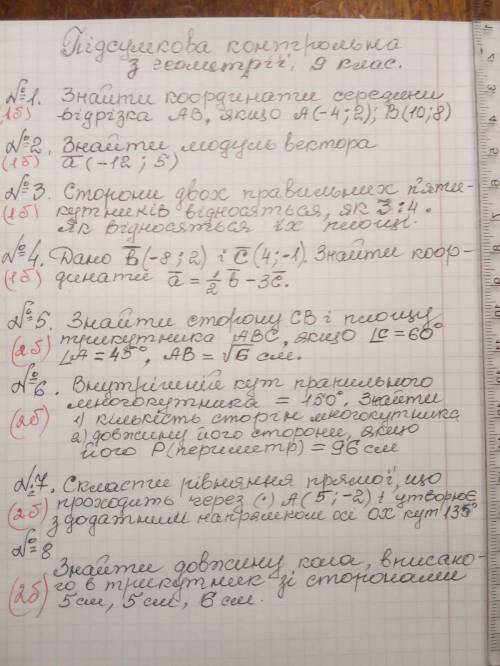 Підсумкова контрольна
з геометрії, 9 клас.
№1. Знайти координати середини
(1б) відрізка AB, якщо A(-4;2); B(10;8)
№2. Знайти модуль вектора
(1б) a̅ (-12; 5)
№3. Сторони двох правильних п'яти-
(1б) кутників відносяться, як 3:4.
Як відносяться їх площі.
№4. Дано b̅(-8;2) і c̅(4;-1). Знайти коор-
(1б) динати a̅ = 1/2 b̅ - 3c̅.
№5. Знайти сторону CB і площу
(2б) трикутника ABC, якщо ∠C=60°
∠A=45°, AB=√6 см.
№6. Внутрішній кут правильного
(2б) многокутника = 150°. Знайти
1) кількість сторін многокутника
2) довжину його сторони, якщо
його P(периметр)=96 см
№7. Скласти рівняння прямої, що
(2б) проходить через (•) A(5;-2) і утворює
з додатним напрямком осі OX кут 135°
№8
Знайти довжину кола, вписано-
(2б) го в трикутник зі сторонами
5 см, 5 см, 6 см.